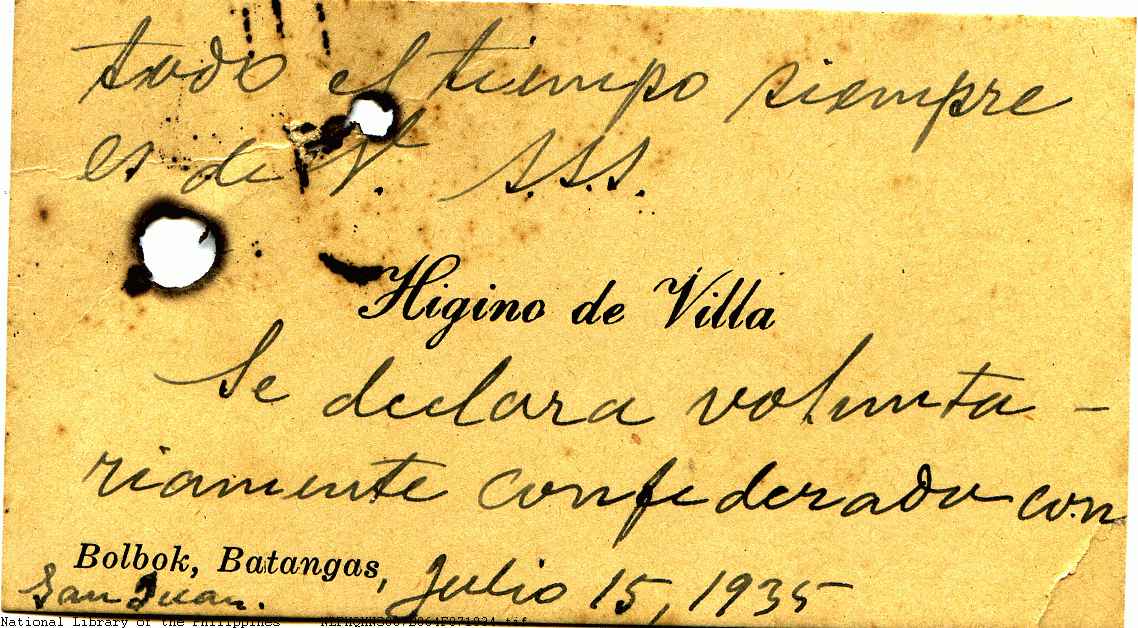 todo el tiempo siempre
es de V. S.S.S.
Higino de Villa
Se declara volunta-
riamente confederado con
Bolbok, Batangas, Julio 15, 1935
San Juan.
National Library of the Philippines